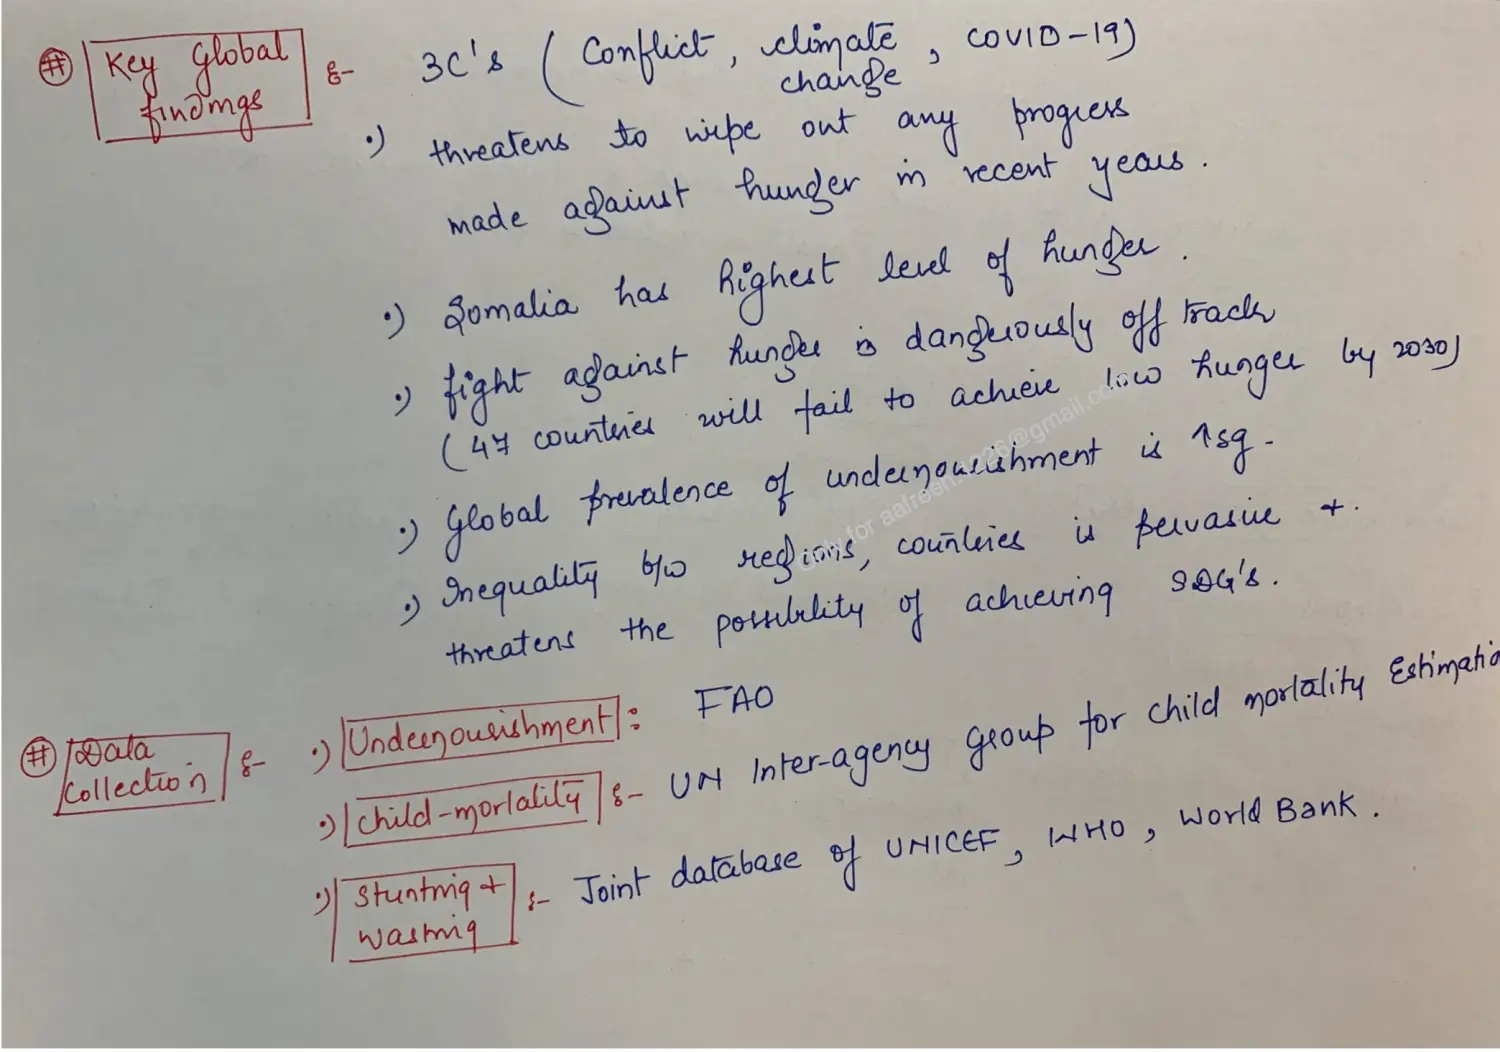 # Key Global findings :- 3C's (Conflict, climate change, COVID-19)
•) threatens to wipe out any progress
made against hunger in recent years.
•) Somalia has highest level of hunger.
•) fight against hunger is dangerously off track
(47 countries will fail to achieve low hunger by 2030)
•) Global prevalence of undernourishment is ↑sg.
•) Inequality b/w regions, countries is pervasive +
threatens the possibility of achieving SDG's.
# Data Collection :- •) Undernourishment : FAO
•) Child-mortality :- UN Inter-agency group for child mortality Estimatio
•) Stunting + Wasting :- Joint database of UNICEF, WHO, World Bank.